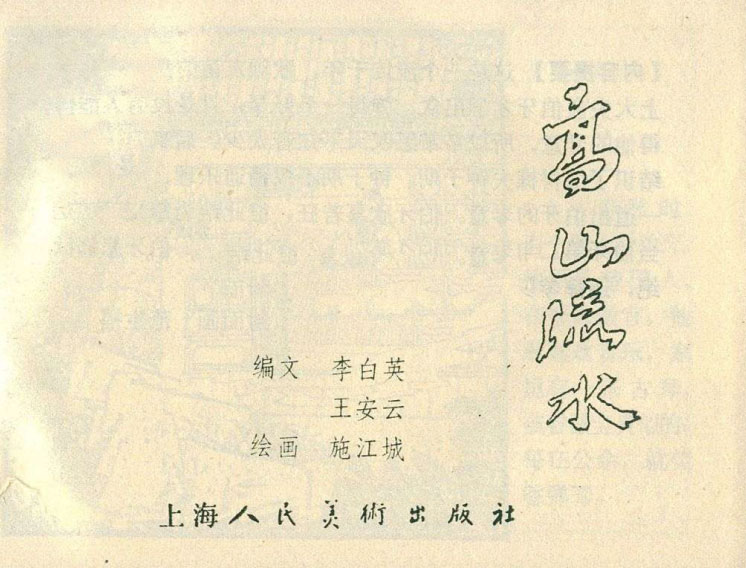 高山流水
编文 李白英
王安云
绘画 施江城
上海人民美術出版社